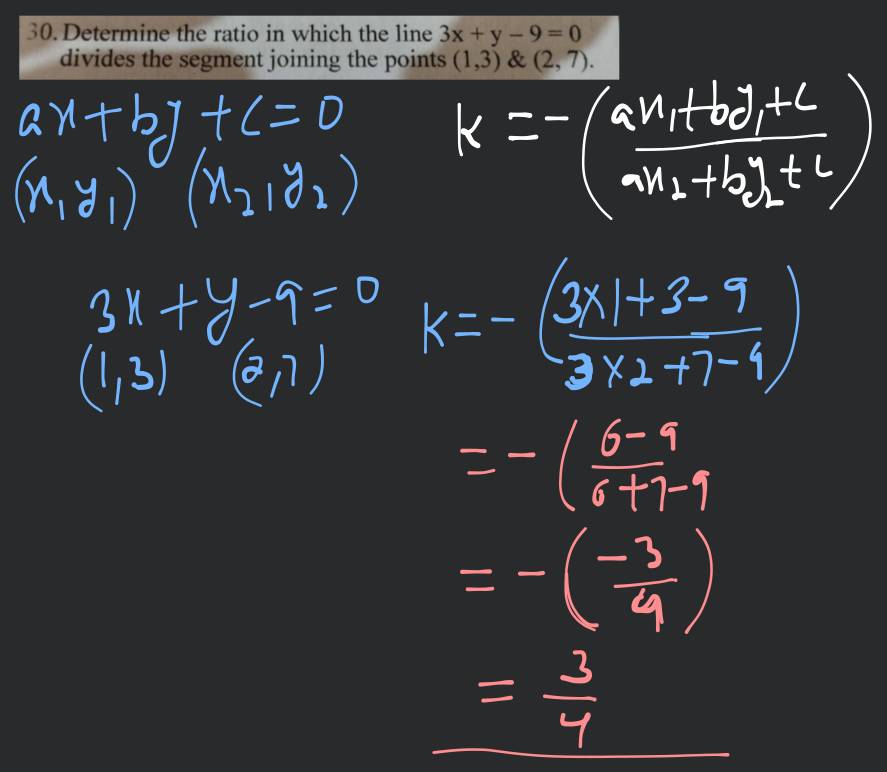 30. Determine the ratio in which the line 3x + y – 9 = 0
divides the segment joining the points (1,3) & (2, 7).
ax+by+c=0
(x₁y₁) (x₂,y₂)
k = -(ax₁+by₁+c / ax₂+by₂+c)
3x+y-9=0
(1,3) (2,7)
k=-(3×1+3-9 / 3×2+7-9)
= -(6-9 / 6+7-9
= -(-3 / 4)
= 3/4